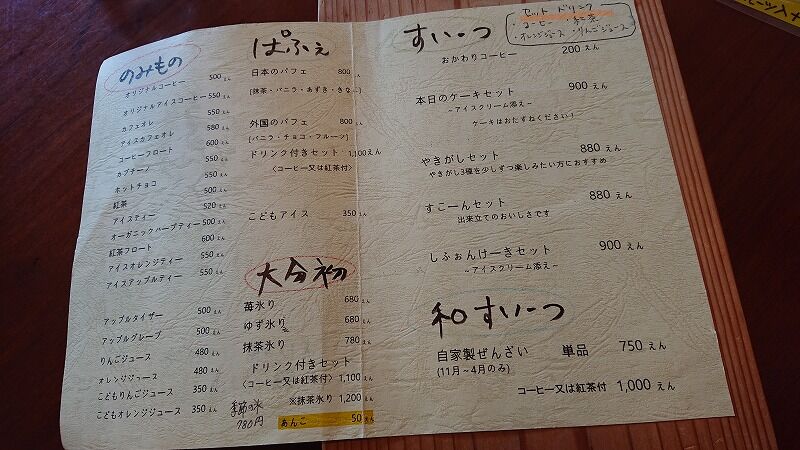 のみもの
オリジナルコーヒー 500えん
オリジナルアイスコーヒー 550えん
カフェオレ 550えん
アイスカフェオレ 580えん
コーヒーフロート 600えん
カプチーノ 550えん
ホットチョコ 550えん
紅茶 500えん
アイスティー 520えん
オーガニックハーブティー 500えん
紅茶フロート 600えん
アイスオレンジティー 550えん
アイスアップルティー 550えん
アップルタイザー 500えん
アップルグレープ 500えん
りんごジュース 480えん
オレンジジュース 480えん
こどもりんごジュース 350えん
こどもオレンジジュース 350えん
ぱふぇ
日本のパフェ 800えん
[抹茶・バニラ・あずき・きなこ]
外国のパフェ 800えん
[バニラ・チョコ・フルーツ]
ドリンク付きセット 1,100えん
〈コーヒー又は紅茶付〉
こどもアイス 350えん
大分初
苺氷り 680えん
ゆず氷り 680えん
抹茶氷り 780えん
ドリンク付きセット
〈コーヒー又は紅茶付〉 1,100えん
※抹茶氷り 1,200えん
季節の氷
780円
あんこ 50えん
すいーつ
セットドリンク
・コーヒー ・紅茶
・オレンジジュース ・りんごジュース
おかわりコーヒー 200えん
本日のケーキセット 900えん
~アイスクリーム添え~
ケーキはおたずねください!
やきがしセット 880えん
やきがし3種を少しずつ楽しみたい方におすすめ
すこーんセット 880えん
出来立てのおいしさです
しふぉんけーきセット 900えん
~アイスクリーム添え~
和すいーつ
自家製ぜんざい 単品 750えん
(11月~4月のみ)
コーヒー又は紅茶付 1,000えん